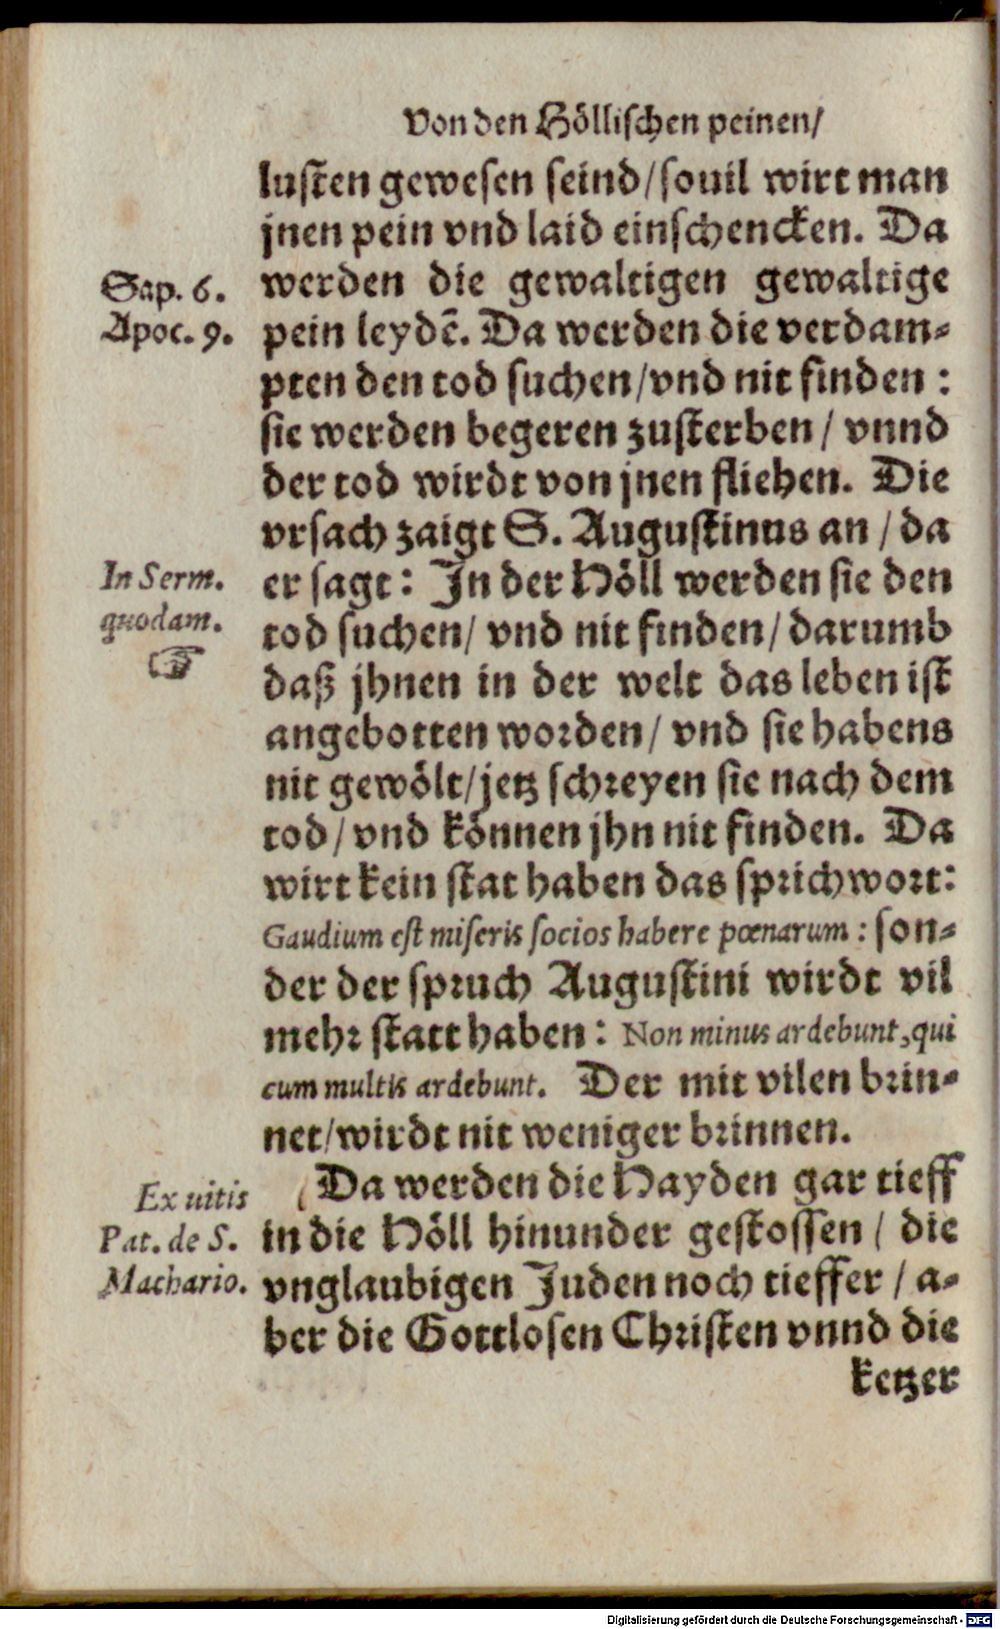 Von den Höllischen peinen/
lusten gewesen seind/souil wirt man
jnen pein vnd laid einschencken. Da
Sap. 6. werden die gewaltigen gewaltige
Apoc. 9. pein leydẽ. Da werden die verdam-
pten den tod suchen/vnd nit finden:
sie werden begeren zusterben/ vnnd
der tod wirdt von jnen fliehen. Die
vrsach zaigt S. Augustinus an/da
In Serm. er sagt: In der Höll werden sie den
quodam. tod suchen/ vnd nit finden/darumb
☞ daß jhnen in der welt das leben ist
angebotten worden/ vnd sie habens
nit gewölt/jetz schreyen sie nach dem
tod/vnd können jhn nit finden. Da
wirt kein stat haben das sprichwort:
Gaudium est miseris socios habere pœnarum: son-
der der spruch Augustini wirdt vil
mehr statt haben: Non minus ardebunt, qui
cum multis ardebunt. Der mit vilen brin-
net/wirdt nit weniger brinnen.
Ex uitis Da werden die Hayden gar tieff
Pat. de S. in die Höll hinunder gestossen/ die
Machario. vnglaubigen Juden noch tieffer/a-
ber die Gottlosen Christen vnnd die
ketzer
Digitalisierung gefördert durch die Deutsche Forschungsgemeinschaft - DFG